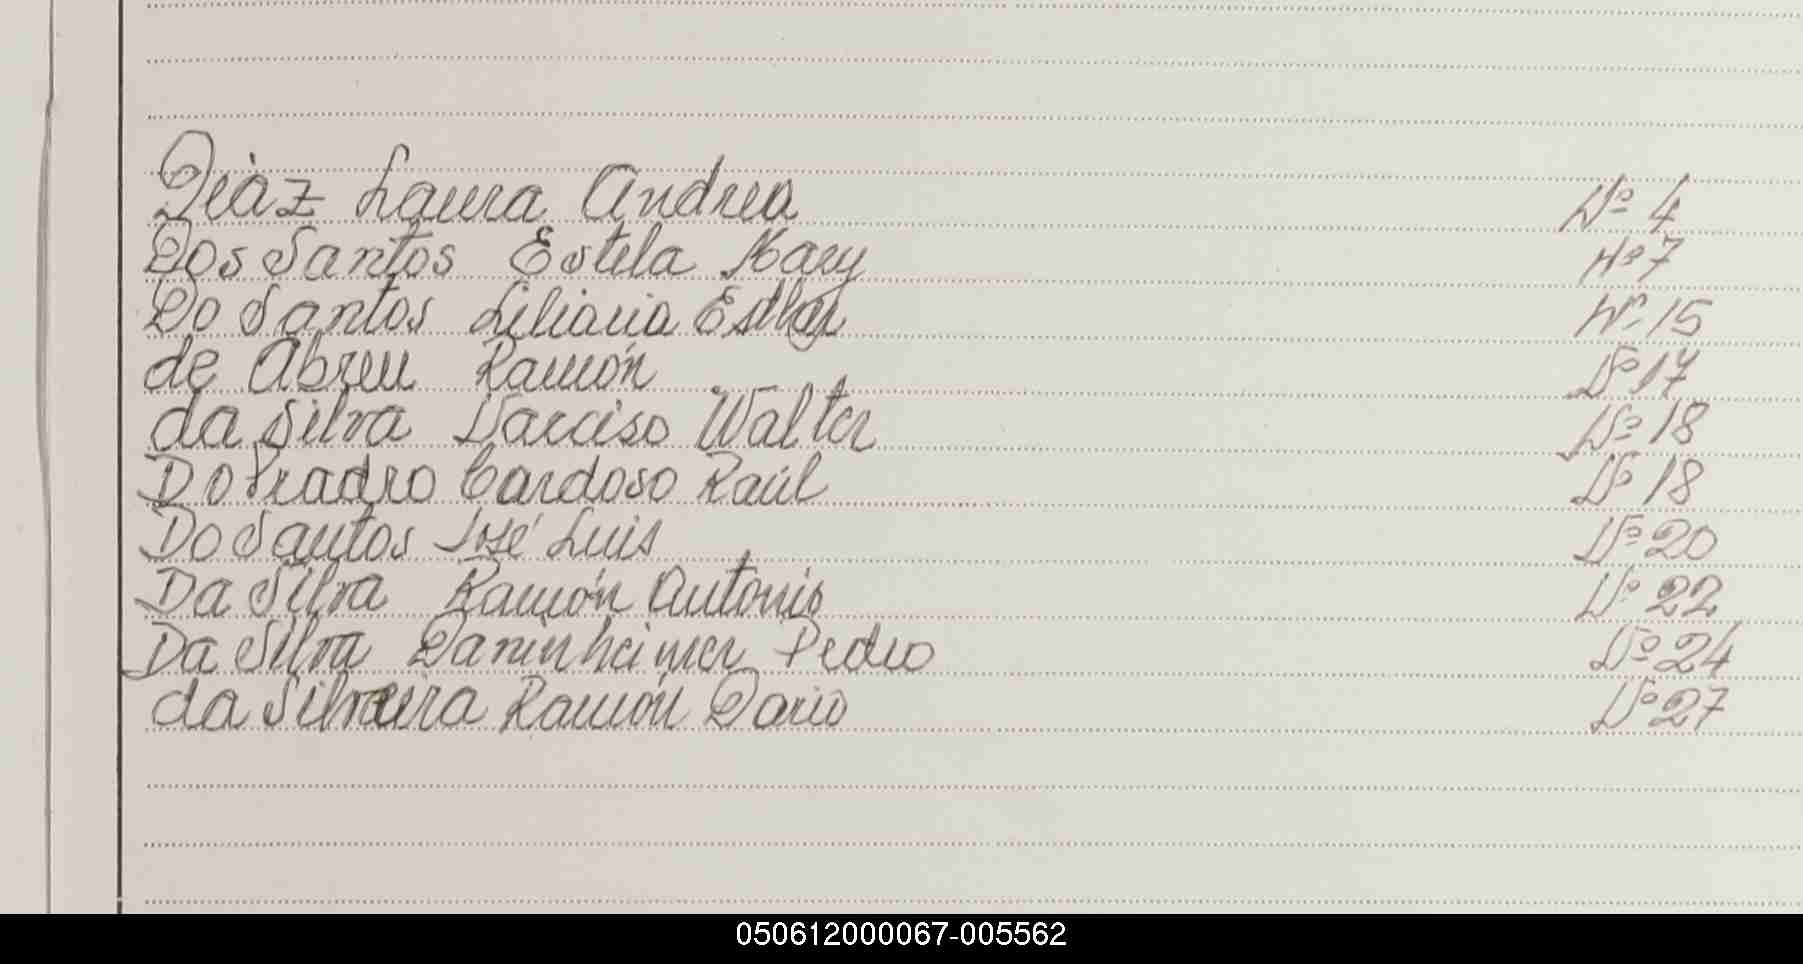 Diáz Laura Andrea Nº 4
Dos Santos Estela Mary Nº 7
Do Santos Liliana Esther Nº 15
de Abreu Ramón Nº 17
da Silva Narciso Walter Nº 18
Do Pradro Cardoso Raúl Nº 18
Do Santos José Luis Nº 20
Da Silva Ramón Antonio Nº 22
Da Silva Daninheimer Pedro Nº 24
da Silveira Ramón Dario Nº 27
050612000067-005562